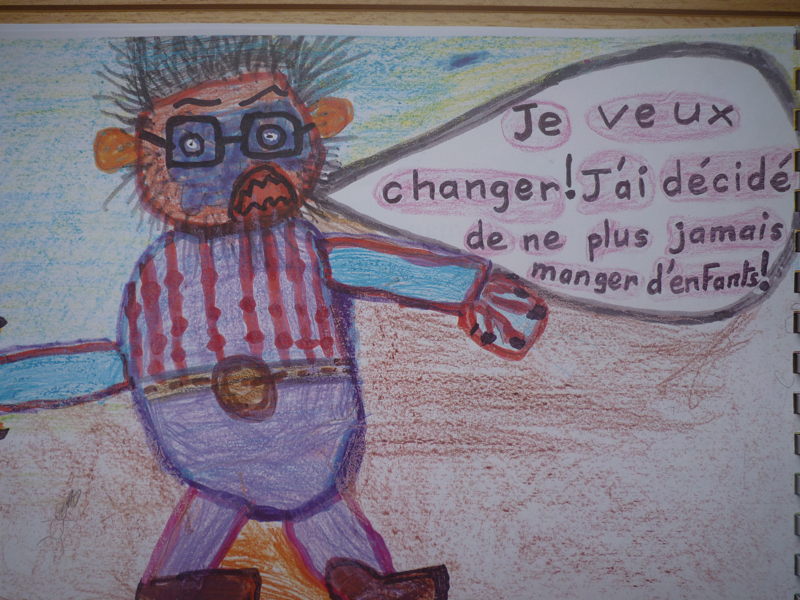 Je veux
changer! J'ai décidé
de ne plus jamais
manger d'enfants!